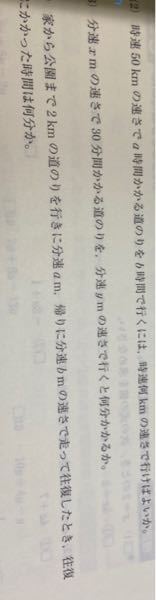 (2) 時速 50 km の速さで a 時間かかる道のりを b 時間で行くには、時速何 km の速さで行けばよいか。
分速 x m の速さで 30 分間かかる道のりを、分速 y m の速さで行くと何分かかるか。
家から公園まで 2 km の道のりを行きに分速 a m、帰りに分速 b m の速さで走って往復したとき、往復
にかかった時間は何分か。